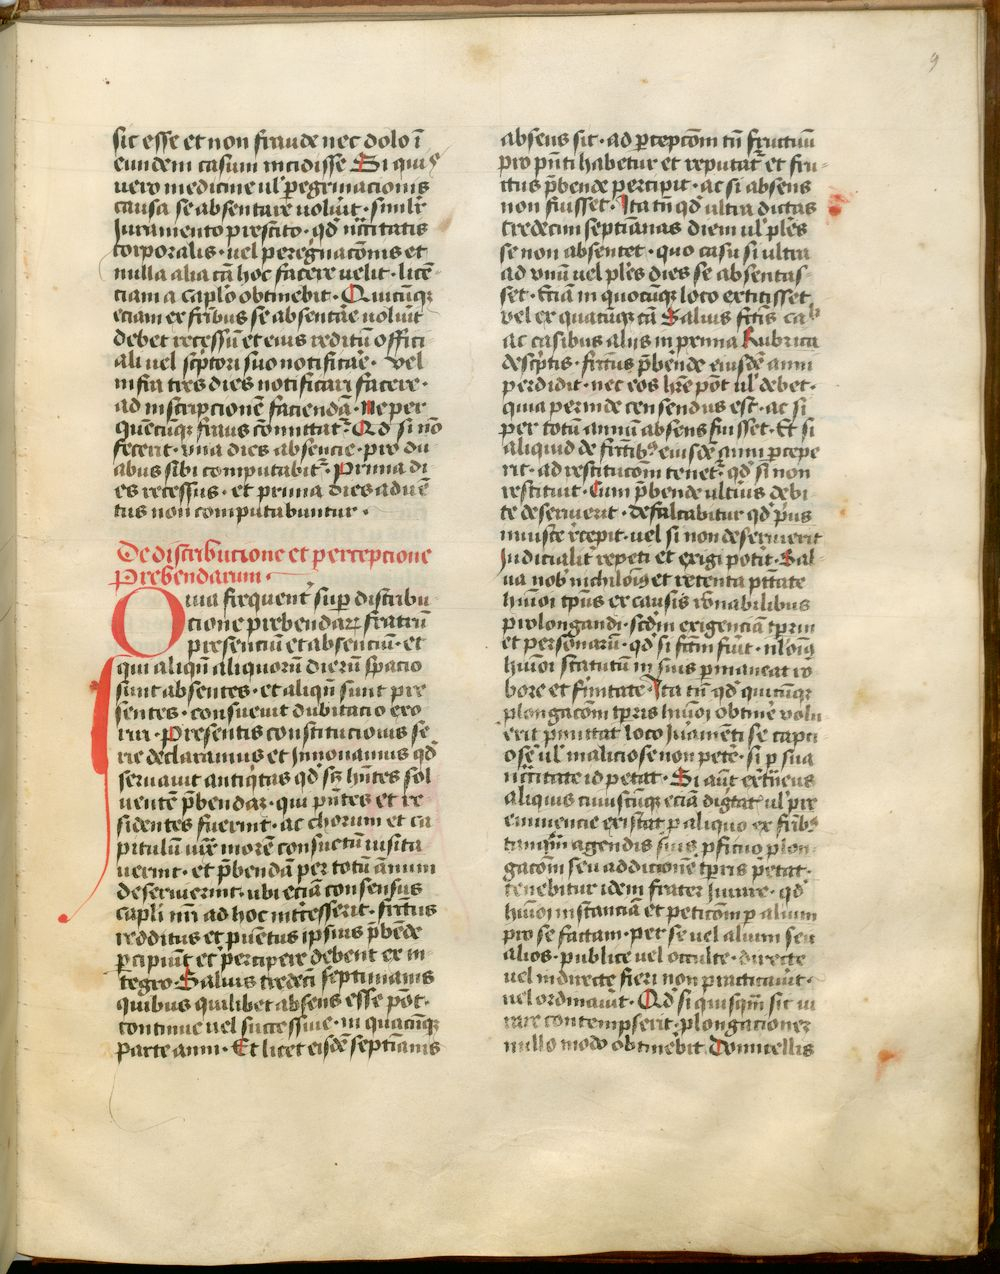 9
sic esse et non fraude nec dolo ī
eundem casum incidisse Si quis
vero medicine ul̕ p̱egrinacionis
causa se absentare voluīt · simil̕r
Juramento prestito · qd̕ nc̄c̄itatis
corporalis · vel peregnac̄onis et
nulla alia cā hoc facere velit · licē-
ciam a cap̄lo obtinebit · Quicūqꝫ
eciam ex fr̄ibus se absentare voluīt
debet recessū et eius reditū offici
ali vel sc̄ptori suo notificare̕ · vel
infra tres dies notificari facere ·
ad inscripcionē faciendā · Ne per
quēcūqꝫ fraus cōmittat̕ · Qd̕ si nō
fecerit · vna dies absencie · pro du
abus sibi computabit̕ · Prima di
es recessus · et prima dies aduē
tus non computabuntur ·
De distribucione et percepcione
Prebendarum ·
Quia frequent̕ sup̱ distribu
cione prebendaꝝ fratrū
presenciū et absenciū · et
qui aliqn̄ aliquorū dierū spacio
sunt absentes · et aliqn̄ sunt pre
sentes · consueuit dubitacio exo
riri · Presentis constitucionis se
rie declaramus et Innouamus qd̕
seruauit antiq̕tas qd̕ sꝫ hn̄tes sol
uentē p̄bendaꝫ · qui pn̄tes et re
sidentes fuerint · ac chorum et ca
pitulū iux̄ morē consuetū visita
uerint · et p̄bendā per totū annum
deseruerint · ubi eciā consensus
capl̕i nr̄i ad hoc int̕cesserit · fruct̕us
redditus et puētus ipsius p̄bēde
ꝑcipiūt et percipere debent ex in
tegro · Saluis tredecī septimanis
quibus quilibet absens esse pōt ·
continue uel successiue · in quacūqꝫ
parte anni · Et licet eisdē septīanis
absens sit · ad ꝑcepcōm tn̄ fructuū
pro pn̄ti habetur et reputat̕ et fru-
ctus p̄bende percipit · ac si absens
non fuisset · Ita tn̄ qd̕ ultra dictas
tredecim septīanas diem ul̕ pl̕es
se non absentet · quo casu si ultra
ad vnū uel pl̕es dies se absentas
set · Eciā in quocūqꝫ loco extitisset
vel ex quacūqꝫ cā Saluis
ac casibus alijs in prima Rubrica
descp̕tis · fructus p̄bende eiusdē anni
perdidit · nec eos hr̄e pōt ul̕ debet ·
quia perinde censendus est · ac si
per totū annū absens fuisset · Et si
aliquid de eiusdē anni ꝑcepe
rit · ad restitucōm tenet̕ · qd̕ si non
restituit · Cum p̄bende ulti̕us debi
te deseruierit · defalcabitur qd̕ p̕us
iniuste recepit · vel si non deseruierit
Judicialit̕ repeti et exigi pot̕it · Sal
ua nob̕ nichilom̕ et retenta pt̄tate
hmōi tp̕us ex causis rōnabilibus
prolongandi · scd̕m exigenciā
et personarū · qd̕ si
hmōi statutū in suis p̱maneat ro
bore et firmitate · Ita tn̄ qd̕ quicūqꝫ
plongacōm tp̱ris hmōi obtine̕ volu
erit pmittat loco Juramēti se capci
ose ul̕ maliciose non pete̕ · si p̱ sua
nc̄c̄itate id petat · Si aūt extrīeus
aliquis cuiuscūqꝫ eciā digtat̕ ul̕ pre
eminencie existat p̱ aliquo ex fr̄ibꝫ
tanqm̄ agendis suis
gacōm seu addicionē tp̱ris petat ·
tenebitur idem frater Jurare · qd̕
hmōi instanciā et peticōm p̱ alium
pro se factam · per se uel alium seu
alios · publice vel occulte · directe
uel indirecte fieri non practicauīt ·
uel ordinauīt · Qd̕ si quisqm̄ sic iu
rare contempserit · plongacionez
nullo modo obtinebit Domicellis